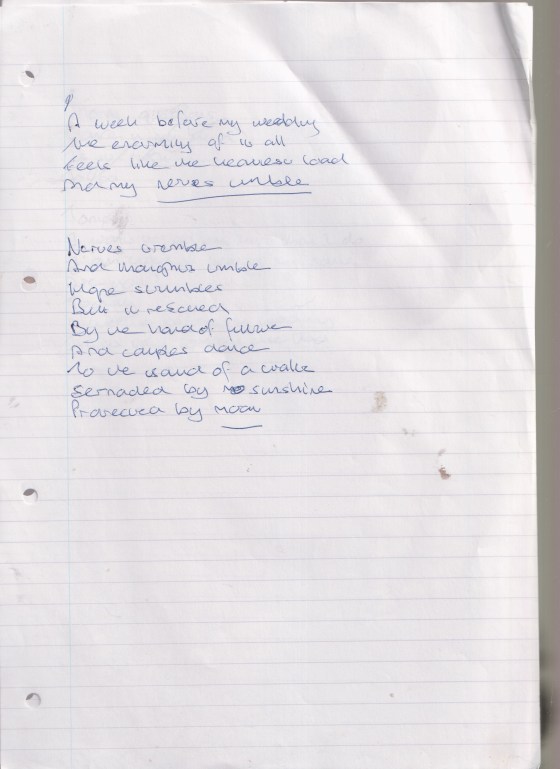 A week before my wedding
The enormity of it all
Feels like the heaviest load
And my nerves tumble

Nerves tremble
And thoughts tumble
Hope stumbles
But is rescued
By the hand of future
And couples dance
To the sound of a waltz
Sernaded by sunshine
Protected by moon